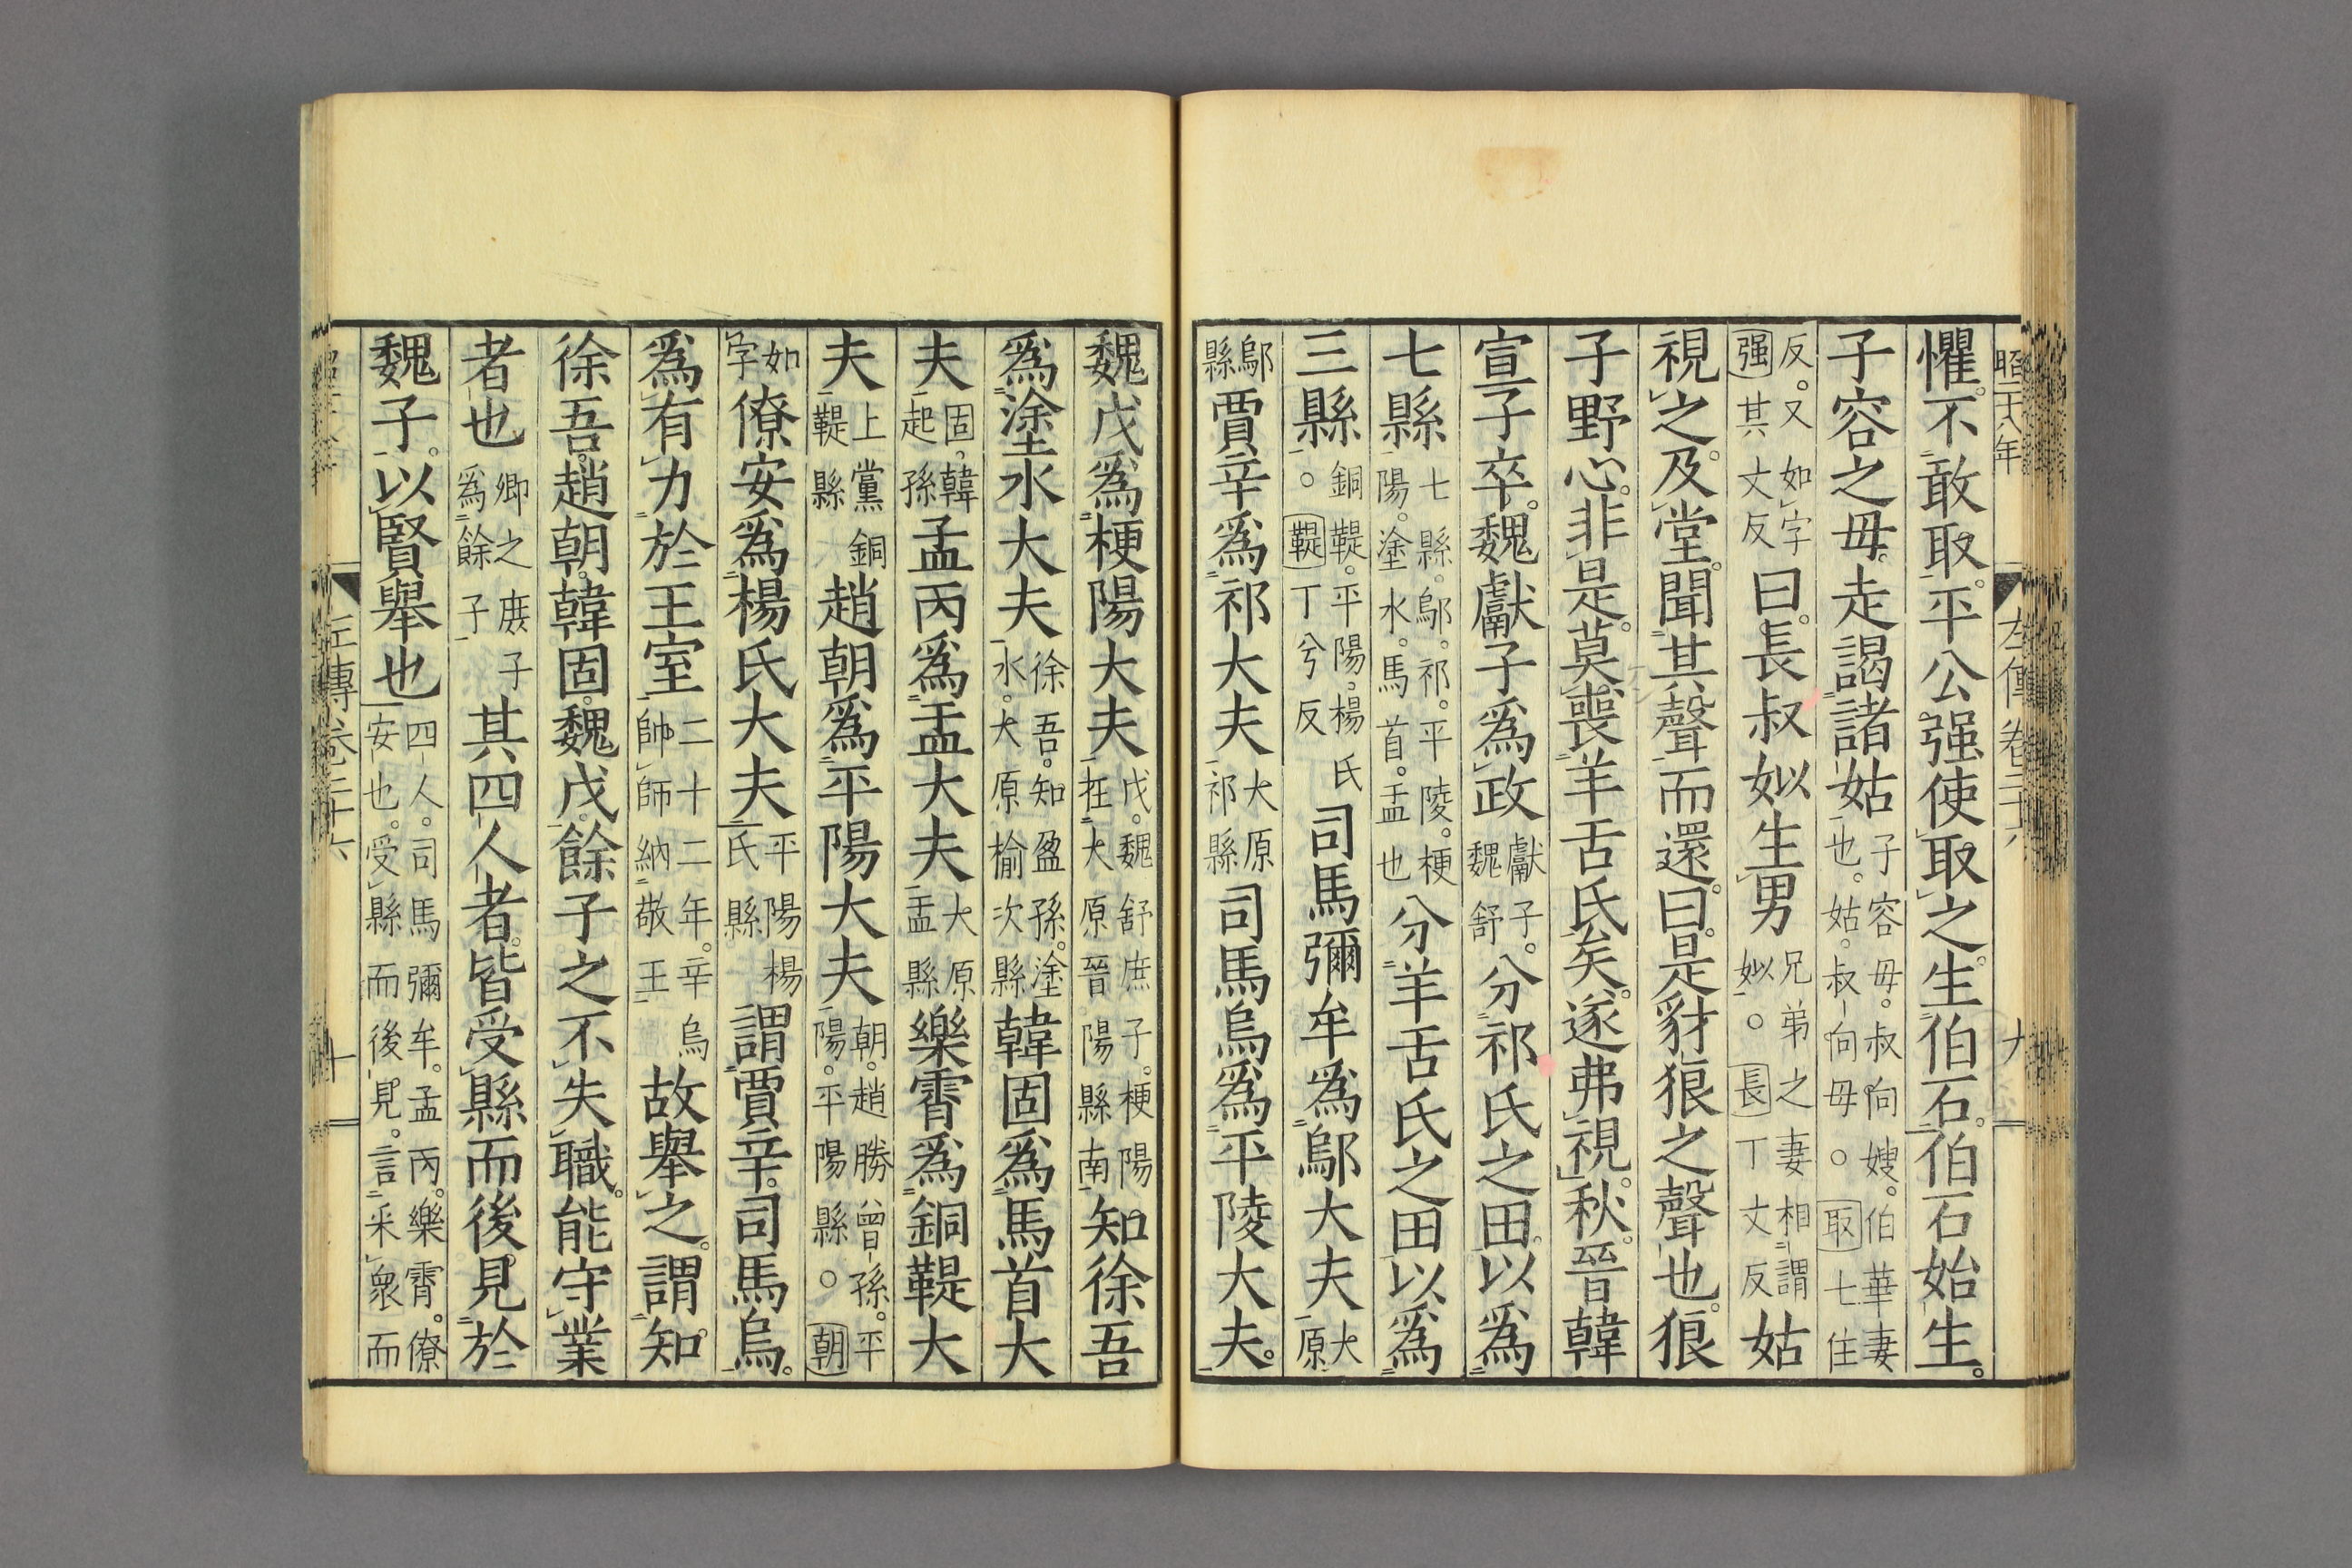 昭二十八年 左傳卷二十六 九
懼。不敢取。平公。强使取之。生伯石。伯石始生。
子容之母。走謁諸姑子容母。叔向嫂。伯華妻也。姑。叔向母。○取七住
反。又如字强其丈反曰。長叔姒生男兄弟之妻相謂姒。○長丁丈反姑
視之。及堂。聞其聲而還。曰。是豺狼之聲也。狼
子野心。非是。莫喪羊舌氏矣。遂弗視。秋。晉韓
宣子卒。魏獻子爲政獻子。魏舒分祁氏之田。以爲
七縣七縣。鄔。祁。平陵。梗陽。塗水。馬首。盂也分羊舌氏之田以爲
三縣銅鞮。平陽。楊氏。○鞮丁兮反司馬彌牟爲鄔大夫大原
鄔縣賈辛爲祁大夫大原祁縣司馬烏爲平陵大夫。
魏戊爲梗陽大夫戊。魏舒庶子。梗陽在大原晉陽縣南知徐吾
爲塗水大夫徐吾。知盈孫。塗水。大原榆次縣韓固爲馬首大
夫固。韓起孫孟丙爲盂大夫大原盂縣樂霄爲銅鞮大
夫上黨銅鞮縣趙朝爲平陽大夫朝。趙勝曾孫。平陽。平陽縣。○朝
如字僚安爲楊氏大夫平陽楊氏縣謂賈辛。司馬烏。
爲有力於王室二十二年。辛烏帥師納敬王故舉之。謂知
徐吾。趙朝。韓固。魏戊。餘子之不失職。能守業
者也卿之庶子爲餘子其四人者。皆受縣而後見於
魏子。以賢舉也四人。司馬彌牟。孟丙。樂霄。僚安也。受縣而後見。言采衆而
左傳卷二十六 十